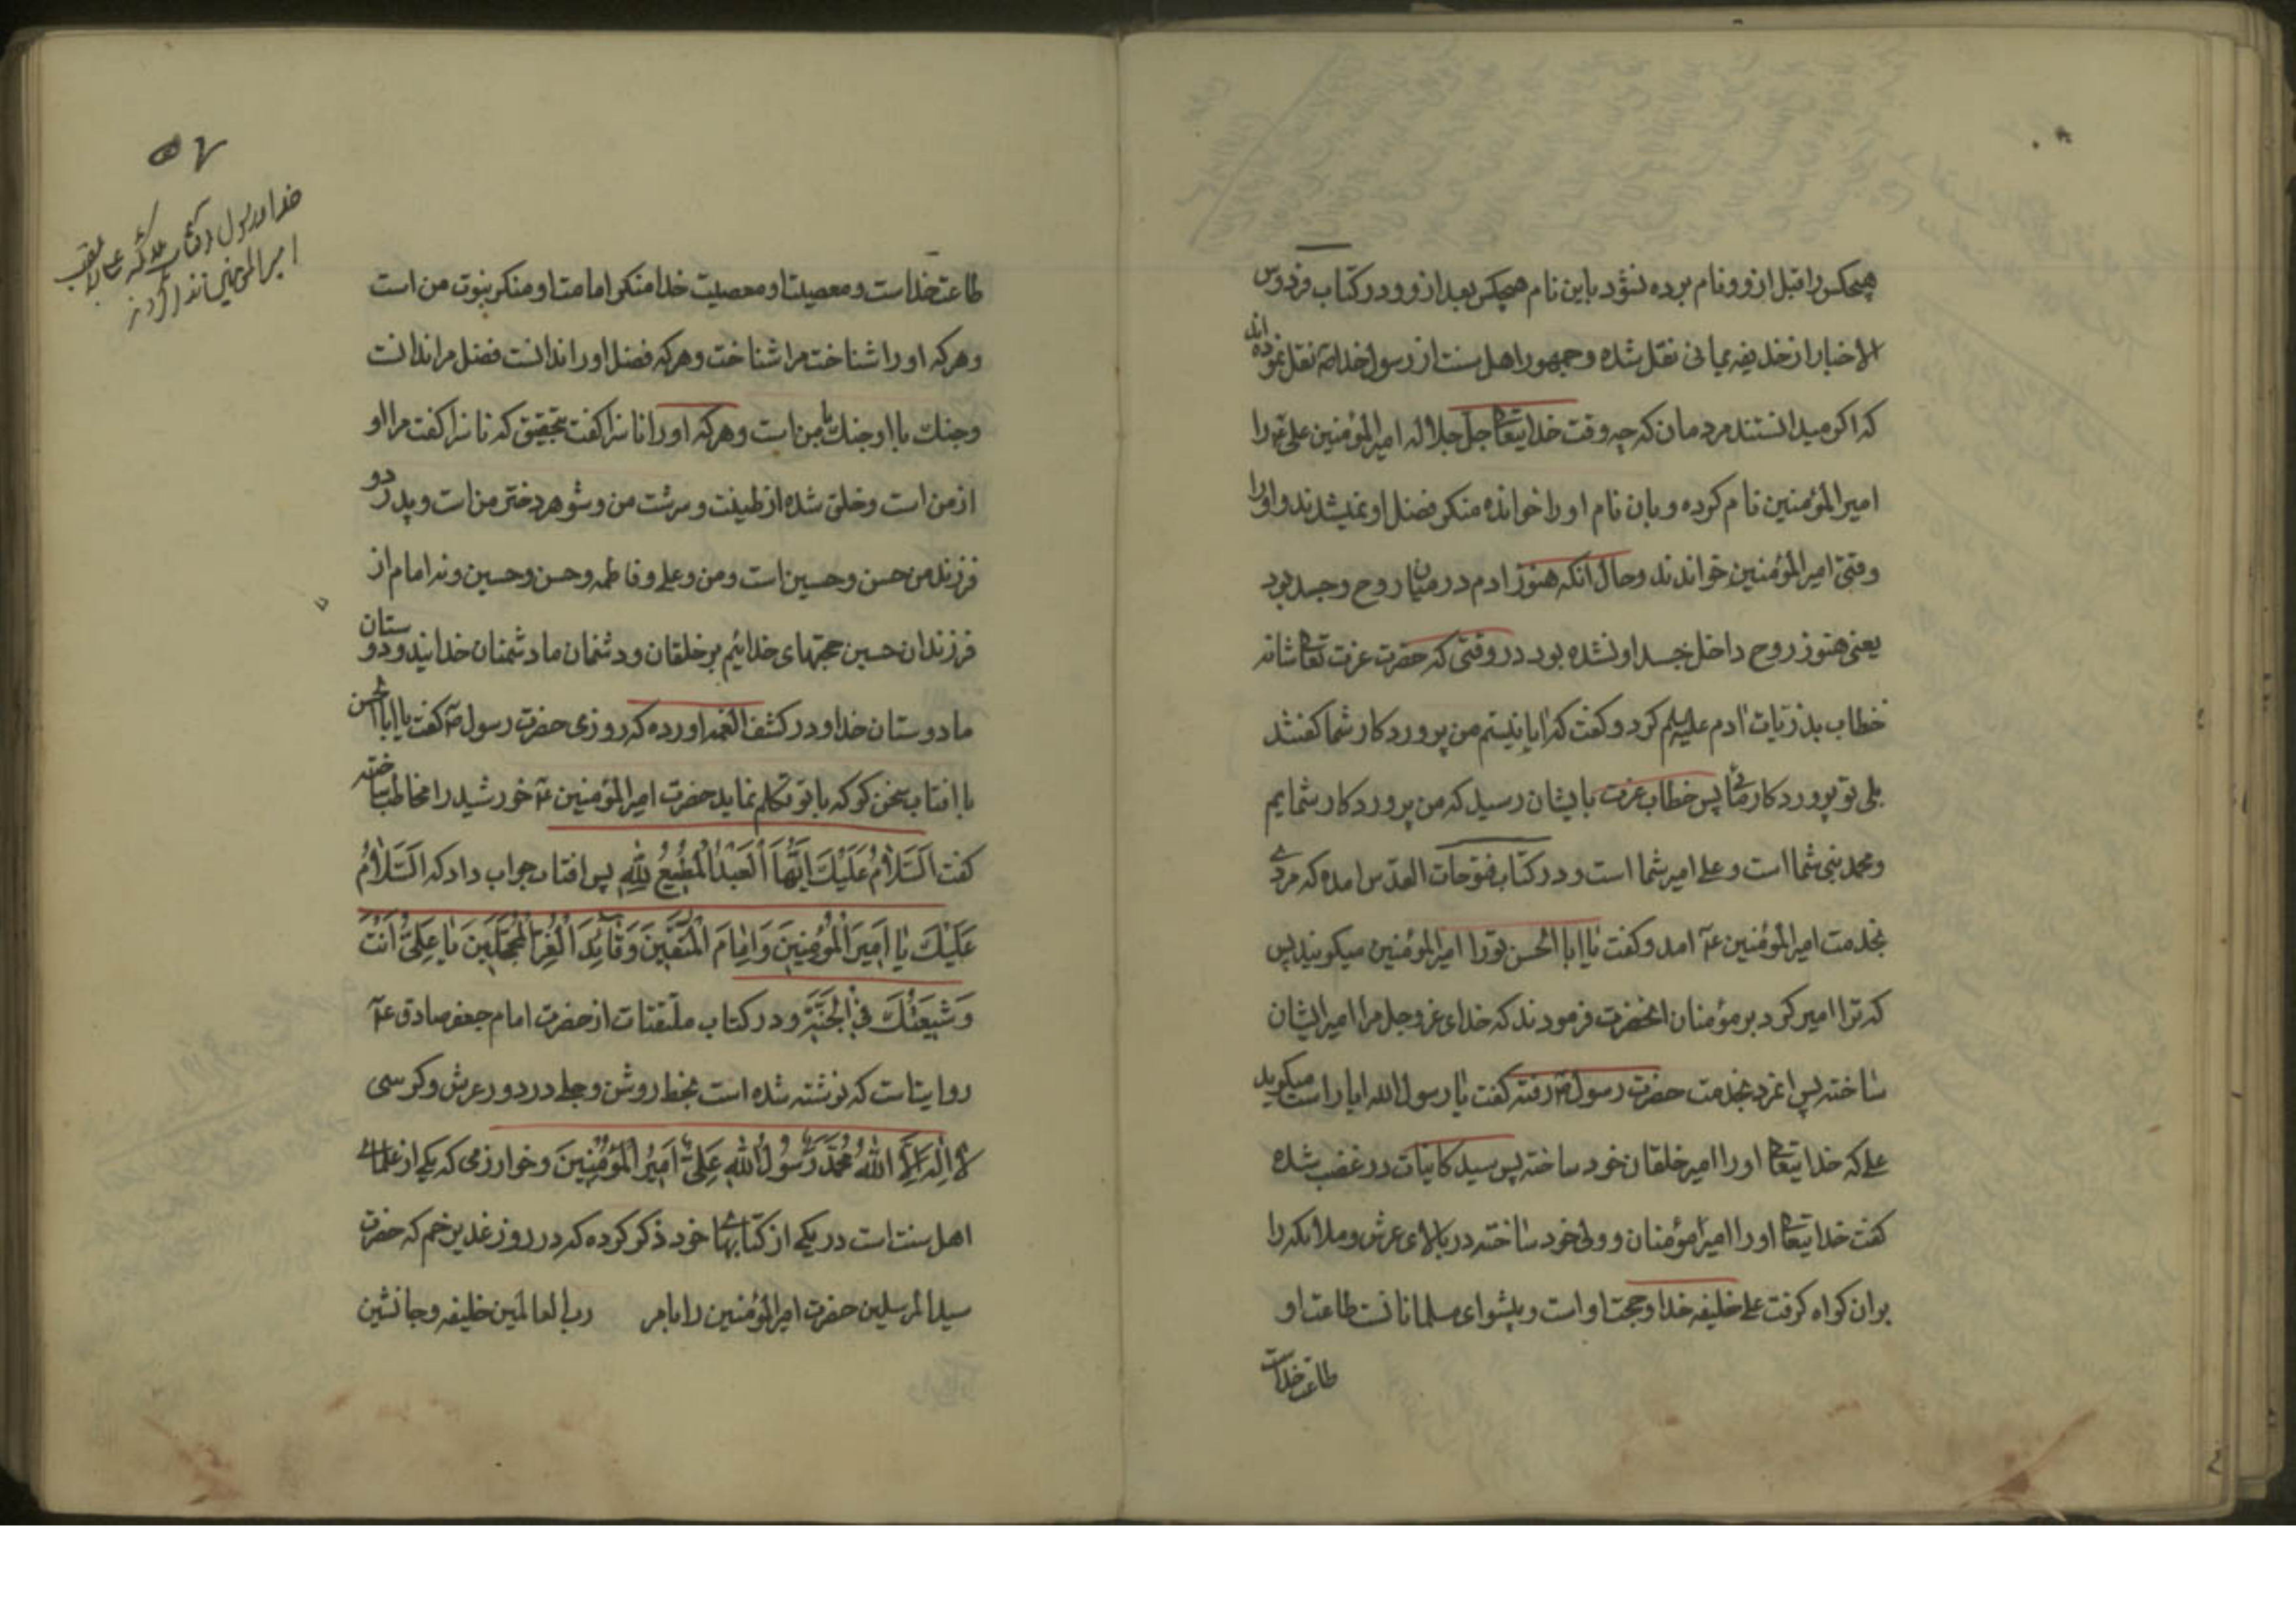 هیچکس را قبل ازو و نام برده نشود باین نام هیچکس بعد ازو و در کتاب فردوس
الاخبار از خذیفه یمانی نقل شده و جمهور اهل سنت از رسول خدا صم نقل نموده اند
که اکر میدانستند مردمان که چه وقت خدایتعالی جل جلاله امیرالمؤمنین علی عم را
امیرالمؤمنین نام کرده و بان نام او را خوانده منکر فضل او نمیشدند و او را
وقتی امیرالمؤمنین خواندند و حال آنکه هنوز ادم در میان روح و جسد بود
یعنی هنوز روح داخل جسد او نشده بود در وقتی که حضرت عزت تعالی شانه
خطاب بذریات ادم علیه السلم کرد و کفت که ایا نیستم من پروردکار شما کفتند
بلی تو پروردکار مائی پس خطاب عزت بایشان رسید که من پروردکار شمایم
و محمد نبی شما است و علی امیر شما است و در کتاب فتوحات القدس امده که مردی
بخدمت امیرالمؤمنین عم امد و کفت یا ابا الحسن تو را امیرالمؤمنین میکویند پس
که ترا امیر کرد بر مؤمنان انحضرت فرمودند که خدای عز و جل مرا امیر ایشان
ساخته پس انمرد بخدمت حضرت رسول صم رفته کفت یا رسول الله ایا راست میکوید
علی که خدایتعالی او را امیر خلقان خود ساخته پس سید کاینات در غضب شده
کفت خدایتعالی او را امیر مؤمنان و ولی خود ساخته در بالای عرش و ملائکه را
بران کواه کرفت علی خلیفه خدا و حجت او است و پیشوای مسلمانانست طاعت او
طاعت خداست
خدا و رسول و کتاب
امیرالمؤمنین
طاعت خداست و معصیت او معصیت خدا منکر امامت او منکر نبوت من است
و هر که او را شناخت مرا شناخت و هر که فضل او را ندانست فضل مرا ندانست
و جنک با او جنک با من است و هر که او را ناسزا کفت بتحقیق که ناسزا کفت مرا او
از من است و خلق شده از طینت و سرشت من و شوهر دختر من است و پدر دو
فرزند من حسن و حسین است و من و علی و فاطمه و حسن و حسین و نه امام از
فرزندان حسین حجتهای خدائیم بر خلقان و دشمنان ما دشمنان خدایند و دوستان
ما دوستان خدا و در کشف الغمه اورده که روزی حضرت رسول صم کفت یا ابا الحسن
با افتاب سخن کو که با تو تکلم نماید حضرت امیرالمؤمنین عم خورشید را مخاطب ساخته
کفت اَلسَّلامُ عَلَیْكَ اَیُّهَا الْعَبْدُ الْمُطیعُ لِلّهِ پس افتاب جواب داد که اَلسَّلامُ
عَلَیْكَ یا اَمیرَ الْمُؤْمِنینَ وَ اِمامَ الْمُتَّقینَ وَ قائِدَ الْغُرِّ الْمُحَجَّلینَ یا عَلِیُّ اَنْتَ
وَ شیعَتُكَ فِی الْجَنَّةِ و در کتاب ملتقتات از حضرت امام جعفر صادق عم
روایتست که نوشته شده است بخط روشن و جلی در دور عرش و کرسی
لا اِلهَ اِلاَّ اللهُ مُحَمَّدٌ رَسُولُ اللهِ عَلِیٌّ اَمیرُ الْمُؤْمِنینَ و خوارزمی که یکی از علمای
اهل سنت است در یکی از کتابهای خود ذکر کرده که در روز غدیر خم که حضرت
سید المرسلین حضرت امیرالمؤمنین را بامر رب العالمین خلیفه و جانشین